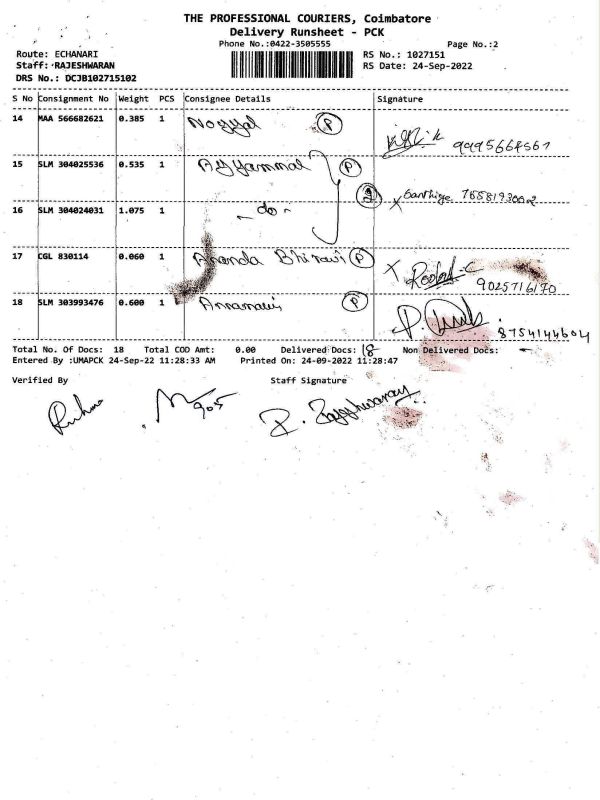 THE PROFESSIONAL COURIERS, Coimbatore
Delivery Runsheet - PCK
Phone No.:0422-3505555 Page No.:2
Route: ECHANARI RS No.: 1027151
Staff: RAJESHWARAN RS Date: 24-Sep-2022
DRS No.: DCJB102715102
S No Consignment No Weight PCS Consignee Details Signature
14 MAA 566682621 0.385 1 Noyyal P
15 SLM 304025536 0.535 1 Ayyammal P
2 7658193002
16 SLM 304024031 1.075 1 - do -
17 CGL 830114 0.060 1 Ananda Bhiravi P
9025716170
18 SLM 303993476 0.600 1 P
8754144604
Total No. Of Docs: 18 Total COD Amt: 0.00 Delivered Docs: 18 Non Delivered Docs: -
Entered By :UMAPCK 24-Sep-22 11:28:33 AM Printed On: 24-09-2022 11:28:47
Verified By Staff Signature
R. Rajeshwaran